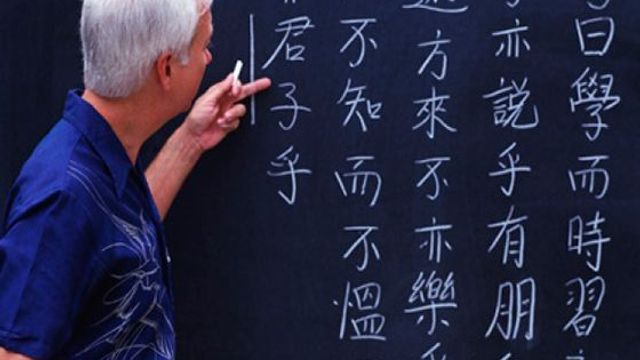 曰學而時習
亦說乎有朋
方來不亦樂乎
不知而不慍
君子乎